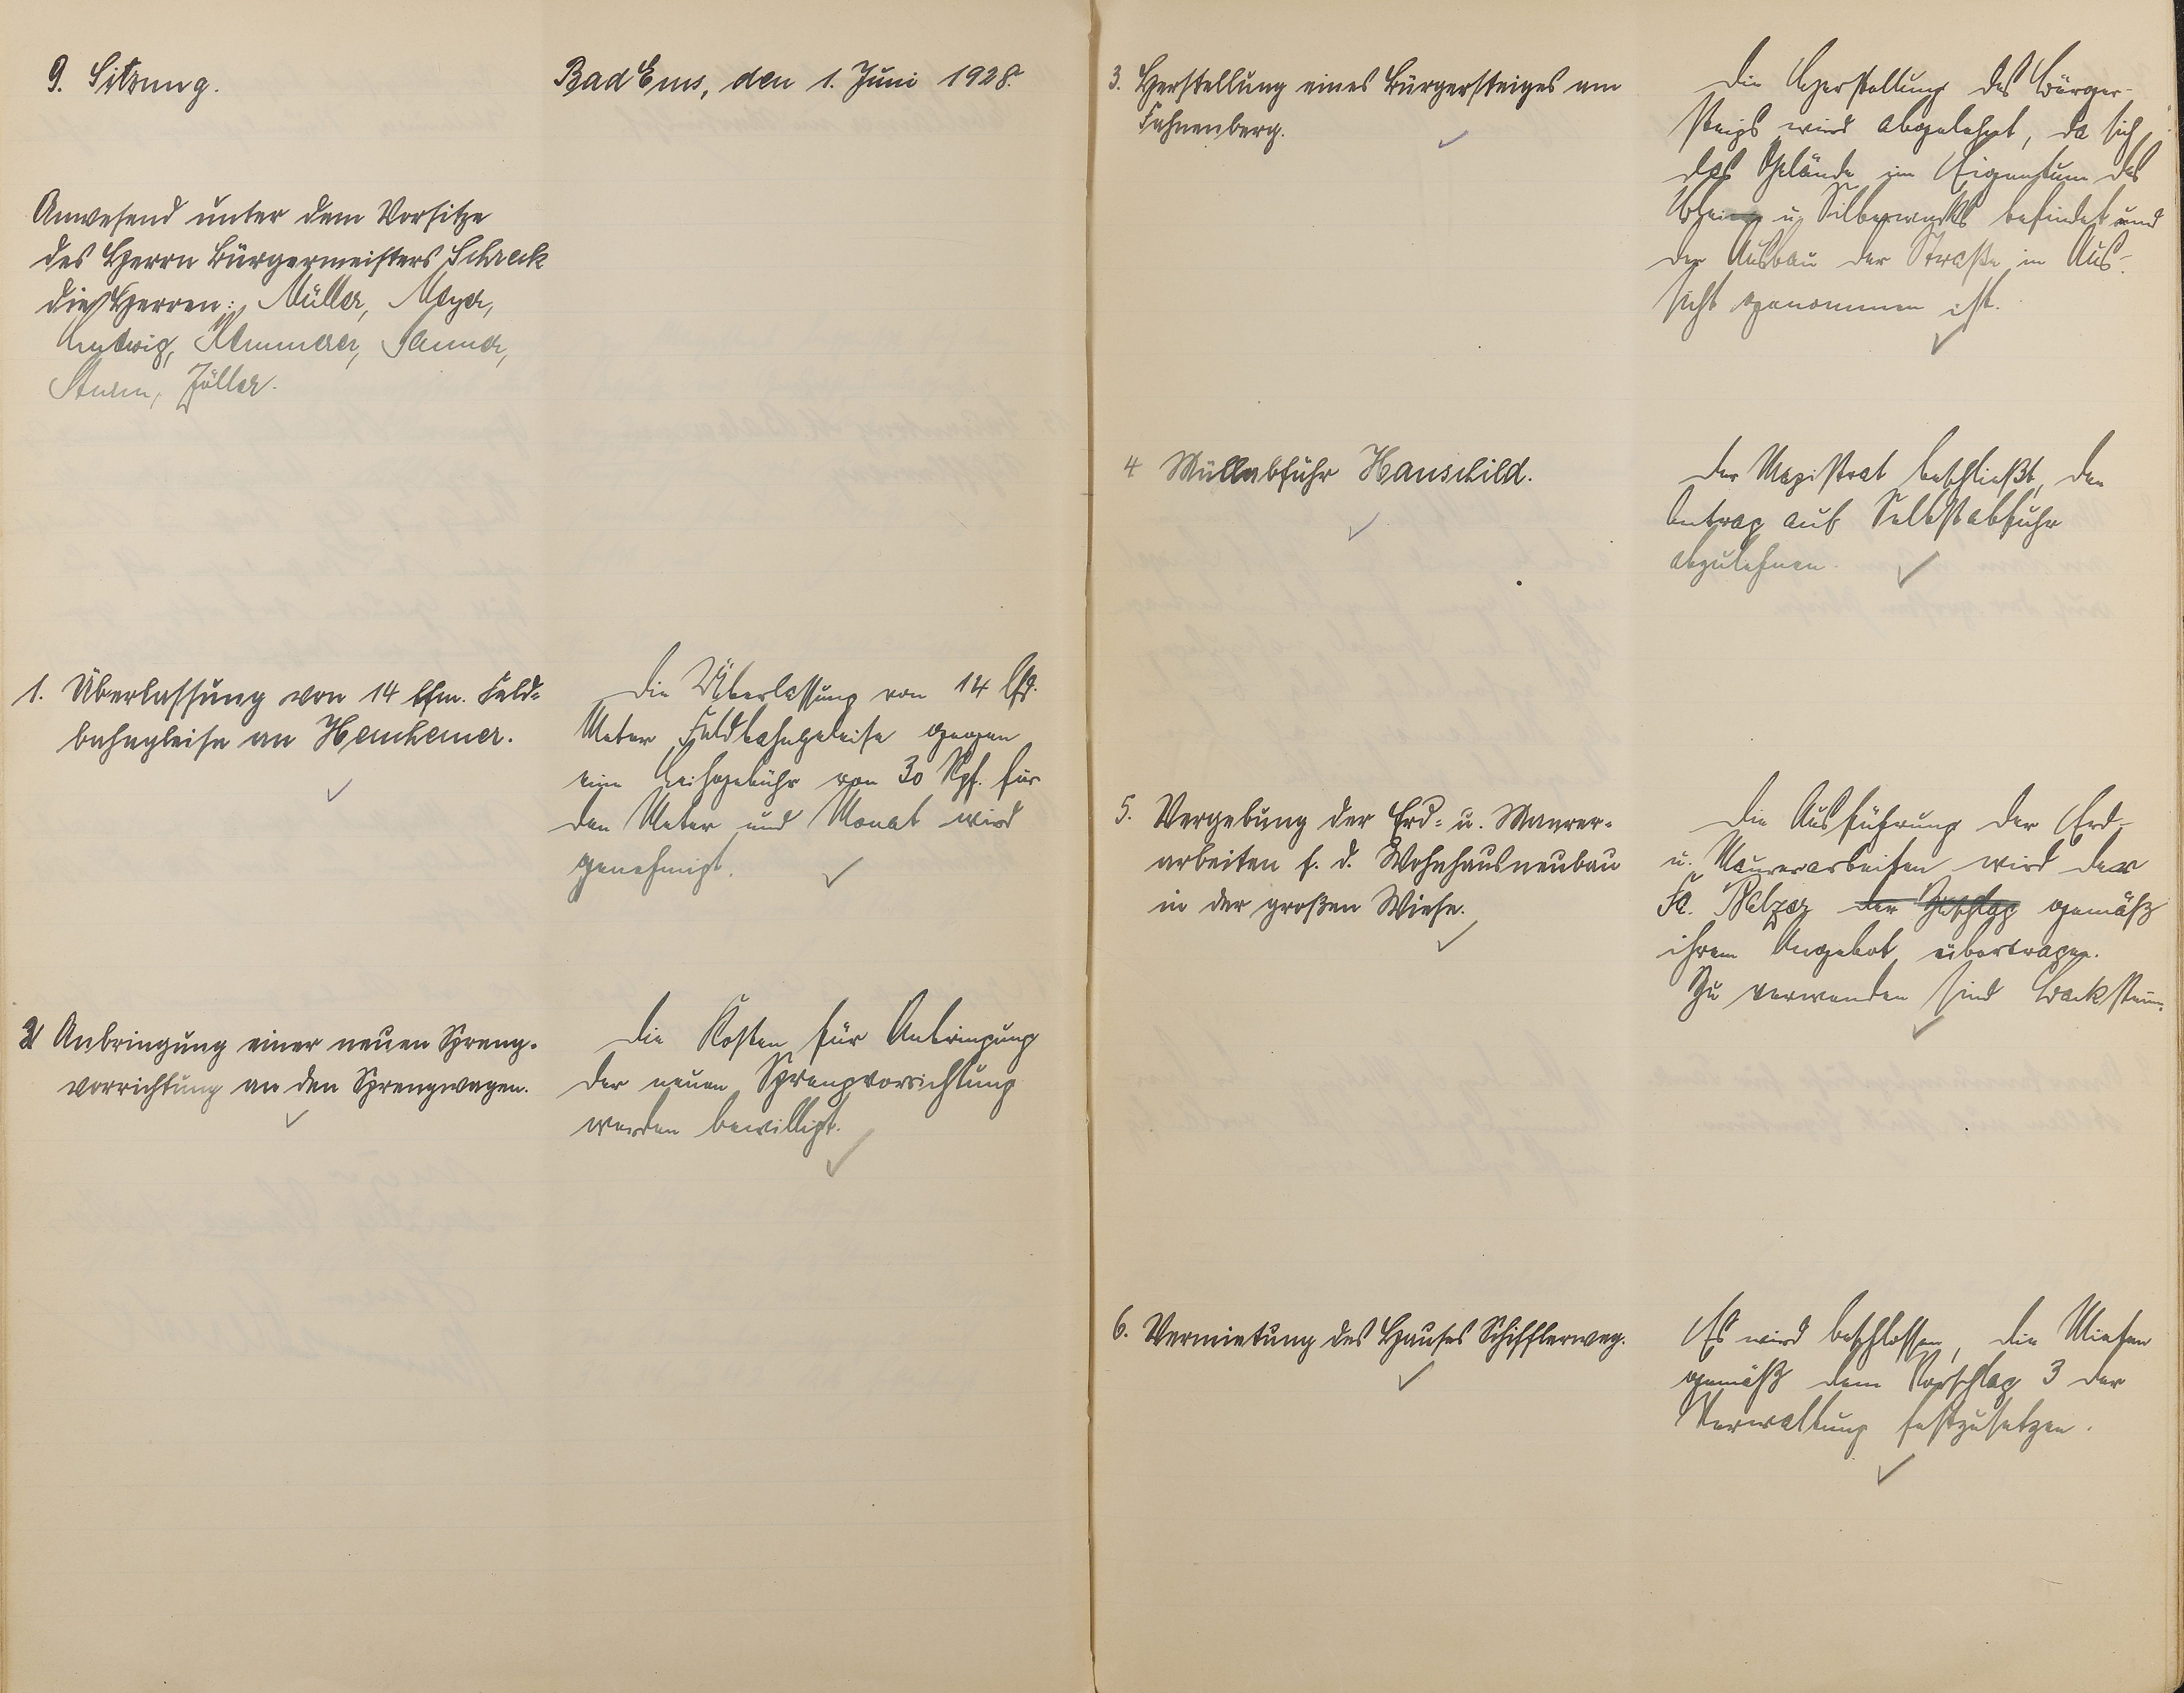 9. Sitzung.
Bad Ems, den 1. Juni 1928.
Anwesend unter dem Vorsitze
des Herrn Bürgermeisters Schreck
die Herren: Müller, Meyer,
Ludwig, Kemmerer, Sauner,
Sturm, Zöller.
1. Überlassung von 14 lfm. Feld-
bahngleise an Hemhemer.
Die Überlassung von 14 lfd.
Meter Feldbahngeleise gegen
eine Leihgebühr von 30 Rpf. für
den Meter und Monat wird
genehmigt.
2. Anbringung einer neuen Spreng-
vorrichtung an den Sprengwagen.
Die Kosten für Anbringung
der neuen Sprengvorrichtung
werden bewilligt.
3. Herstellung eines Bürgersteiges am
Fahnenberg.
Die Herstellung des Bürger-
steigs wird abgelehnt, da sich
das Gelände im Eigentum des
Blei- u. Silberwerks befindet und
der Ausbau der Straße in Aus-
sicht genommen ist.
4 Müllabfuhr Hauschild.
Der Magistrat beschließt, den
Antrag auf Selbstabfuhr
abzulehnen.
5. Vergebung der Erd- u. Maurer-
arbeiten f. d. Wohnhausneubau
in der großen Wiese.
Die Ausführung der Erd-
u. Maurerarbeiten wird der
Fa. Balzer der Zuschlag gemäß
ihrem Angebot übertragen.
Zu verwenden sind Backsteine.
6. Vermietung des Hauses Schifflerweg.
Es wird beschlossen, die Mieten
gemäß dem Vorschlag 3 der
Verwaltung festzusetzen.